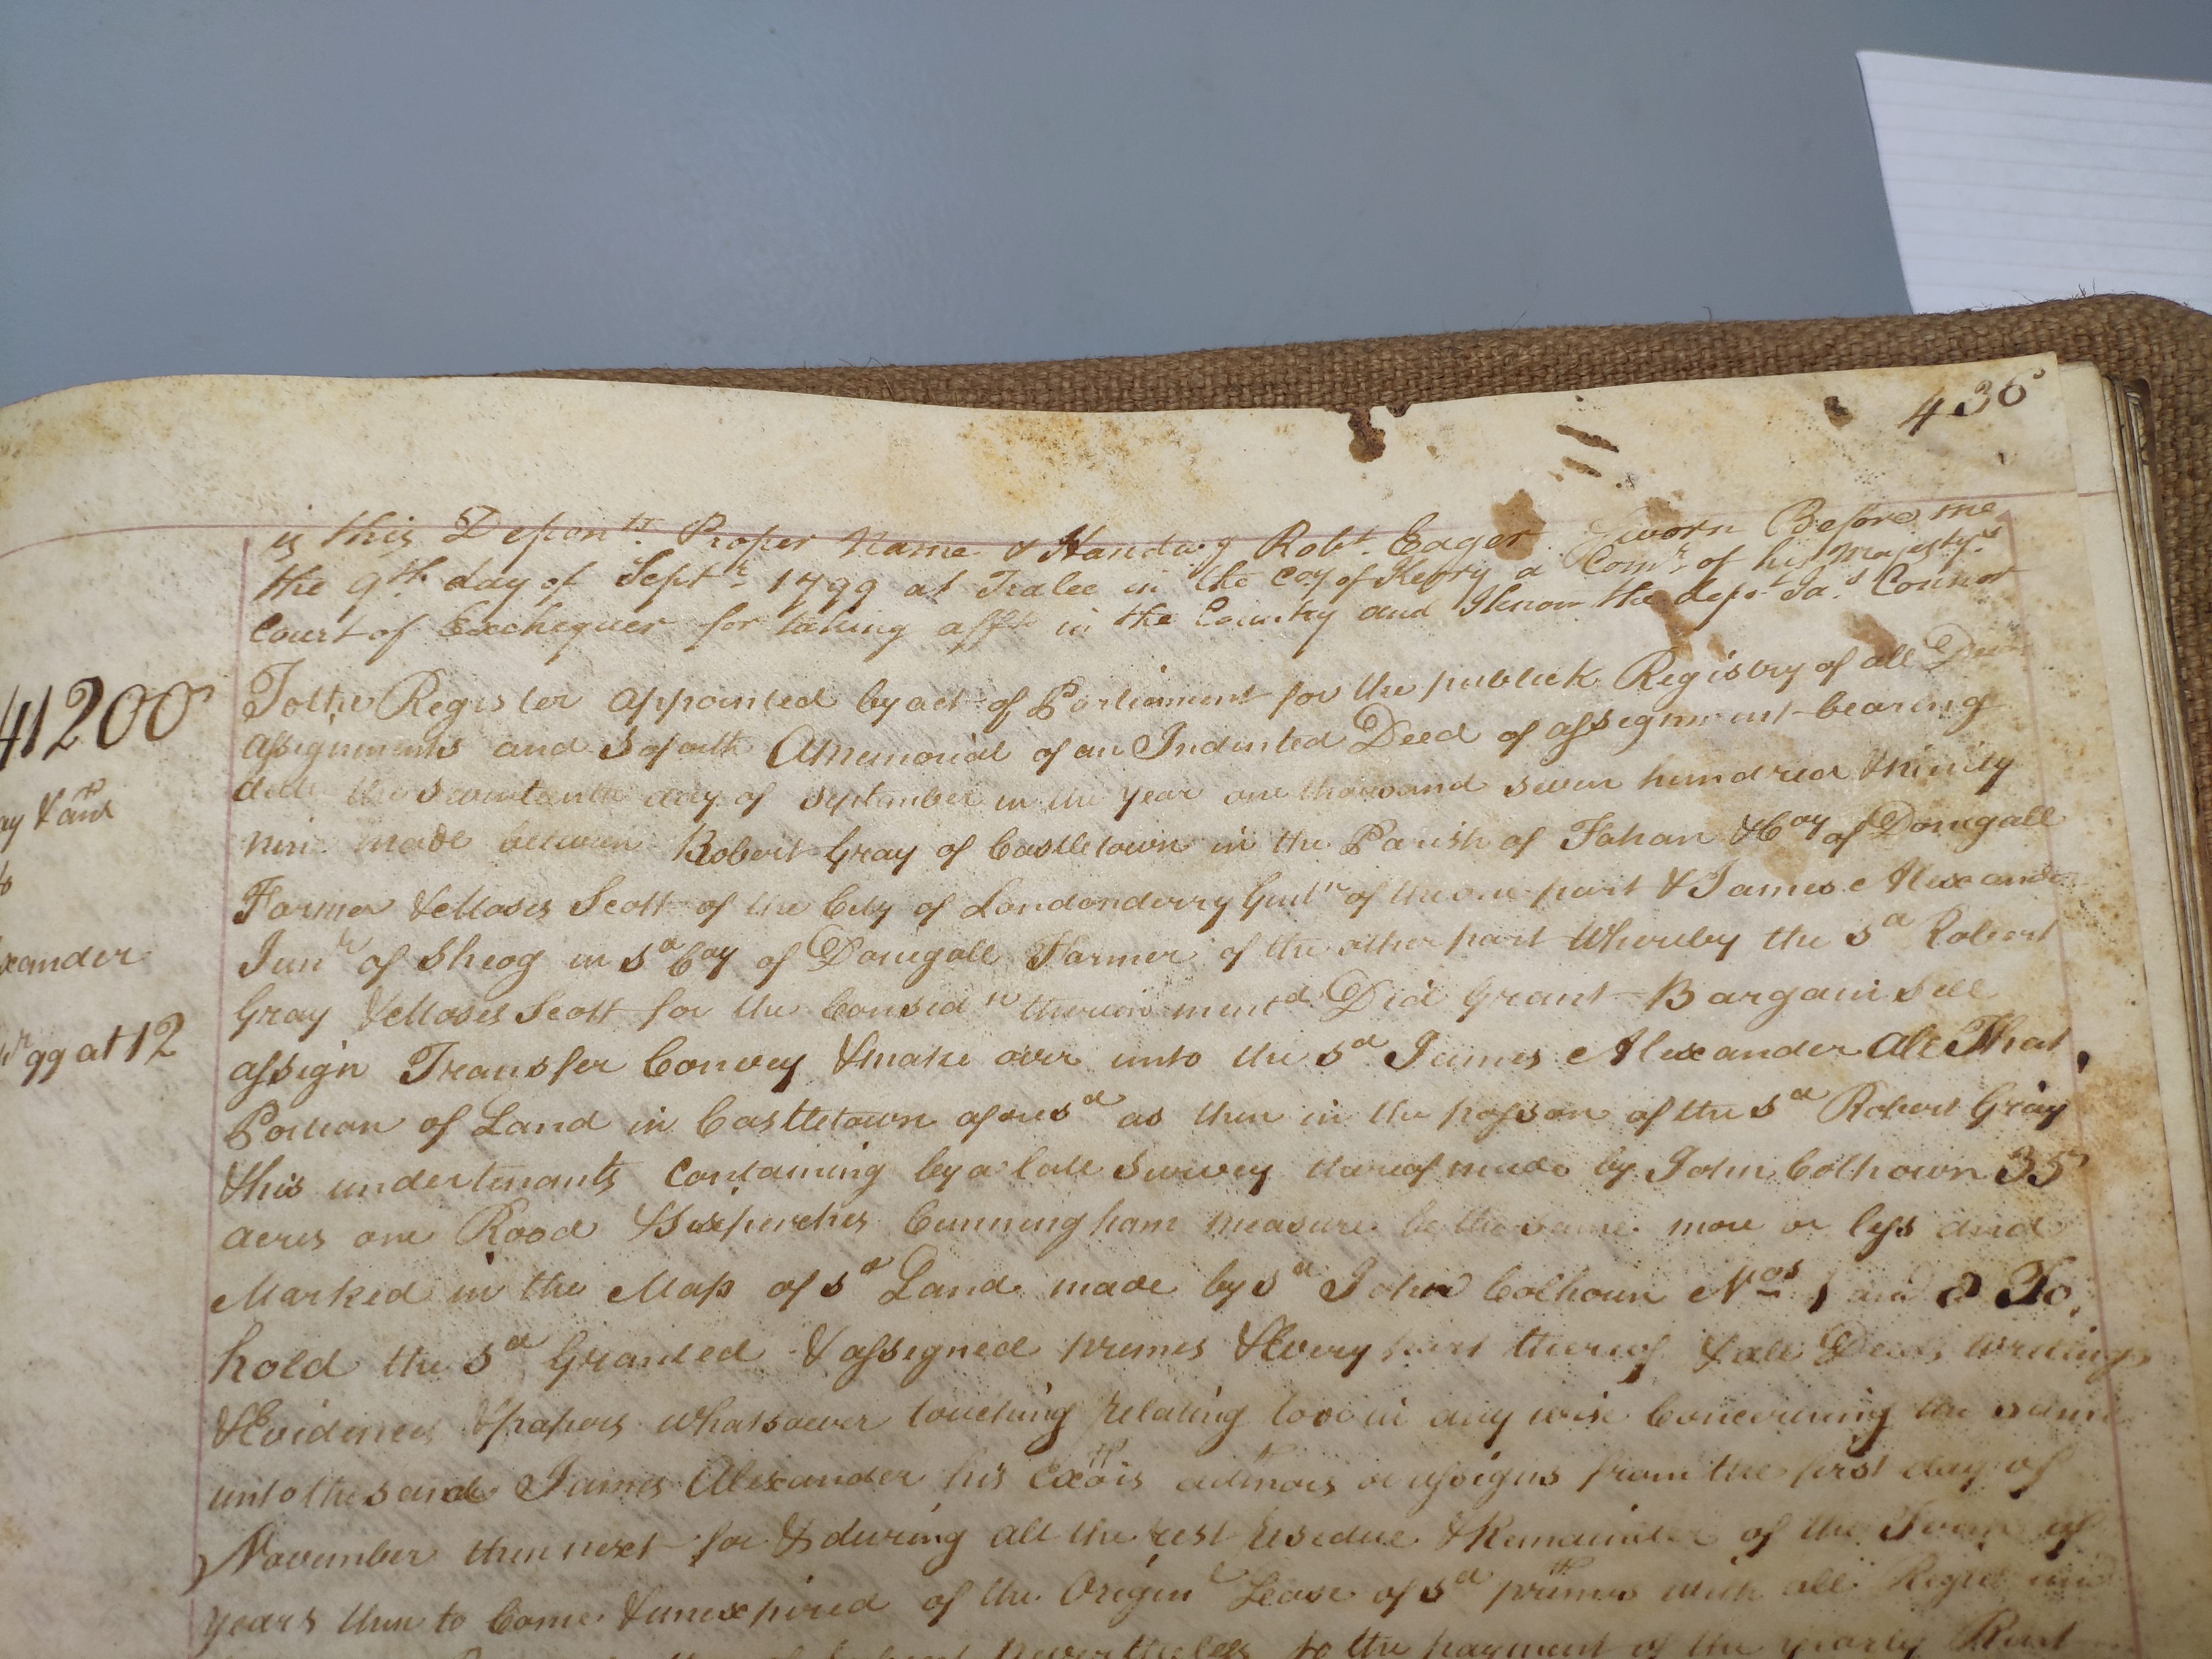 436
is this Depon.tt Proper Name & Handw.g Rob.t Eager Sworn Before me
the 9th day of Sept.r 1799 at Tralee in the Coy. of Kerry a Com.r of his Majesty's
Court of Exchequer for taking aff.ts in the Country and I know the dep.t Ja.s Connor
41200
To the Register appointed by act of Parliament for the publick Registry of all
assignments and so forth A Memorial of an Indented Deed of assignment bearing
date the seventeenth day of September in the Year one thousand seven hundred & ninety
nine made between Robert Gray of Castletown in the Parish of Fahan & Coy of Donegall
Farmer & Moses Scott of the City of Londonderry Gent.n of the one part & James Alexander
Jun.r of Sheog in s.d Coy of Donegall Farmer of the other part Whereby the s.d Robert
Gray & Moses Scott for the Consid.n therein ment.d Did Grant Bargain Sell
assign Transfer Convey & make over unto the s.d James Alexander All That
Portion of Land in Castletown afores.d as then in the posson of the s.d Robert Gray
& his undertenants Containing by a late Survey thereof made by John Colhown 35
acres one Rood & Six perches Cunningham measure be the same more or less and
Marked in the Map of s.d Land made by s.d John Colhoun Nos. 1 and 8 To
hold the s.d Granted & assigned premes & Every part thereof & all Deeds writings
& Evidences & papers whatsoever touching relating to or in any wise Concerning the same
unto the said James Alexander his Exōrs admors or assigns from the first day of
November then next for & during all the rest residue & Remainder of the Term of
years then to Come & unexpired of the Origin.l Lease of s.d premes with all
nevertheless to the payment of the yearly Rent
ay & an.r
to
xander
99 at 12